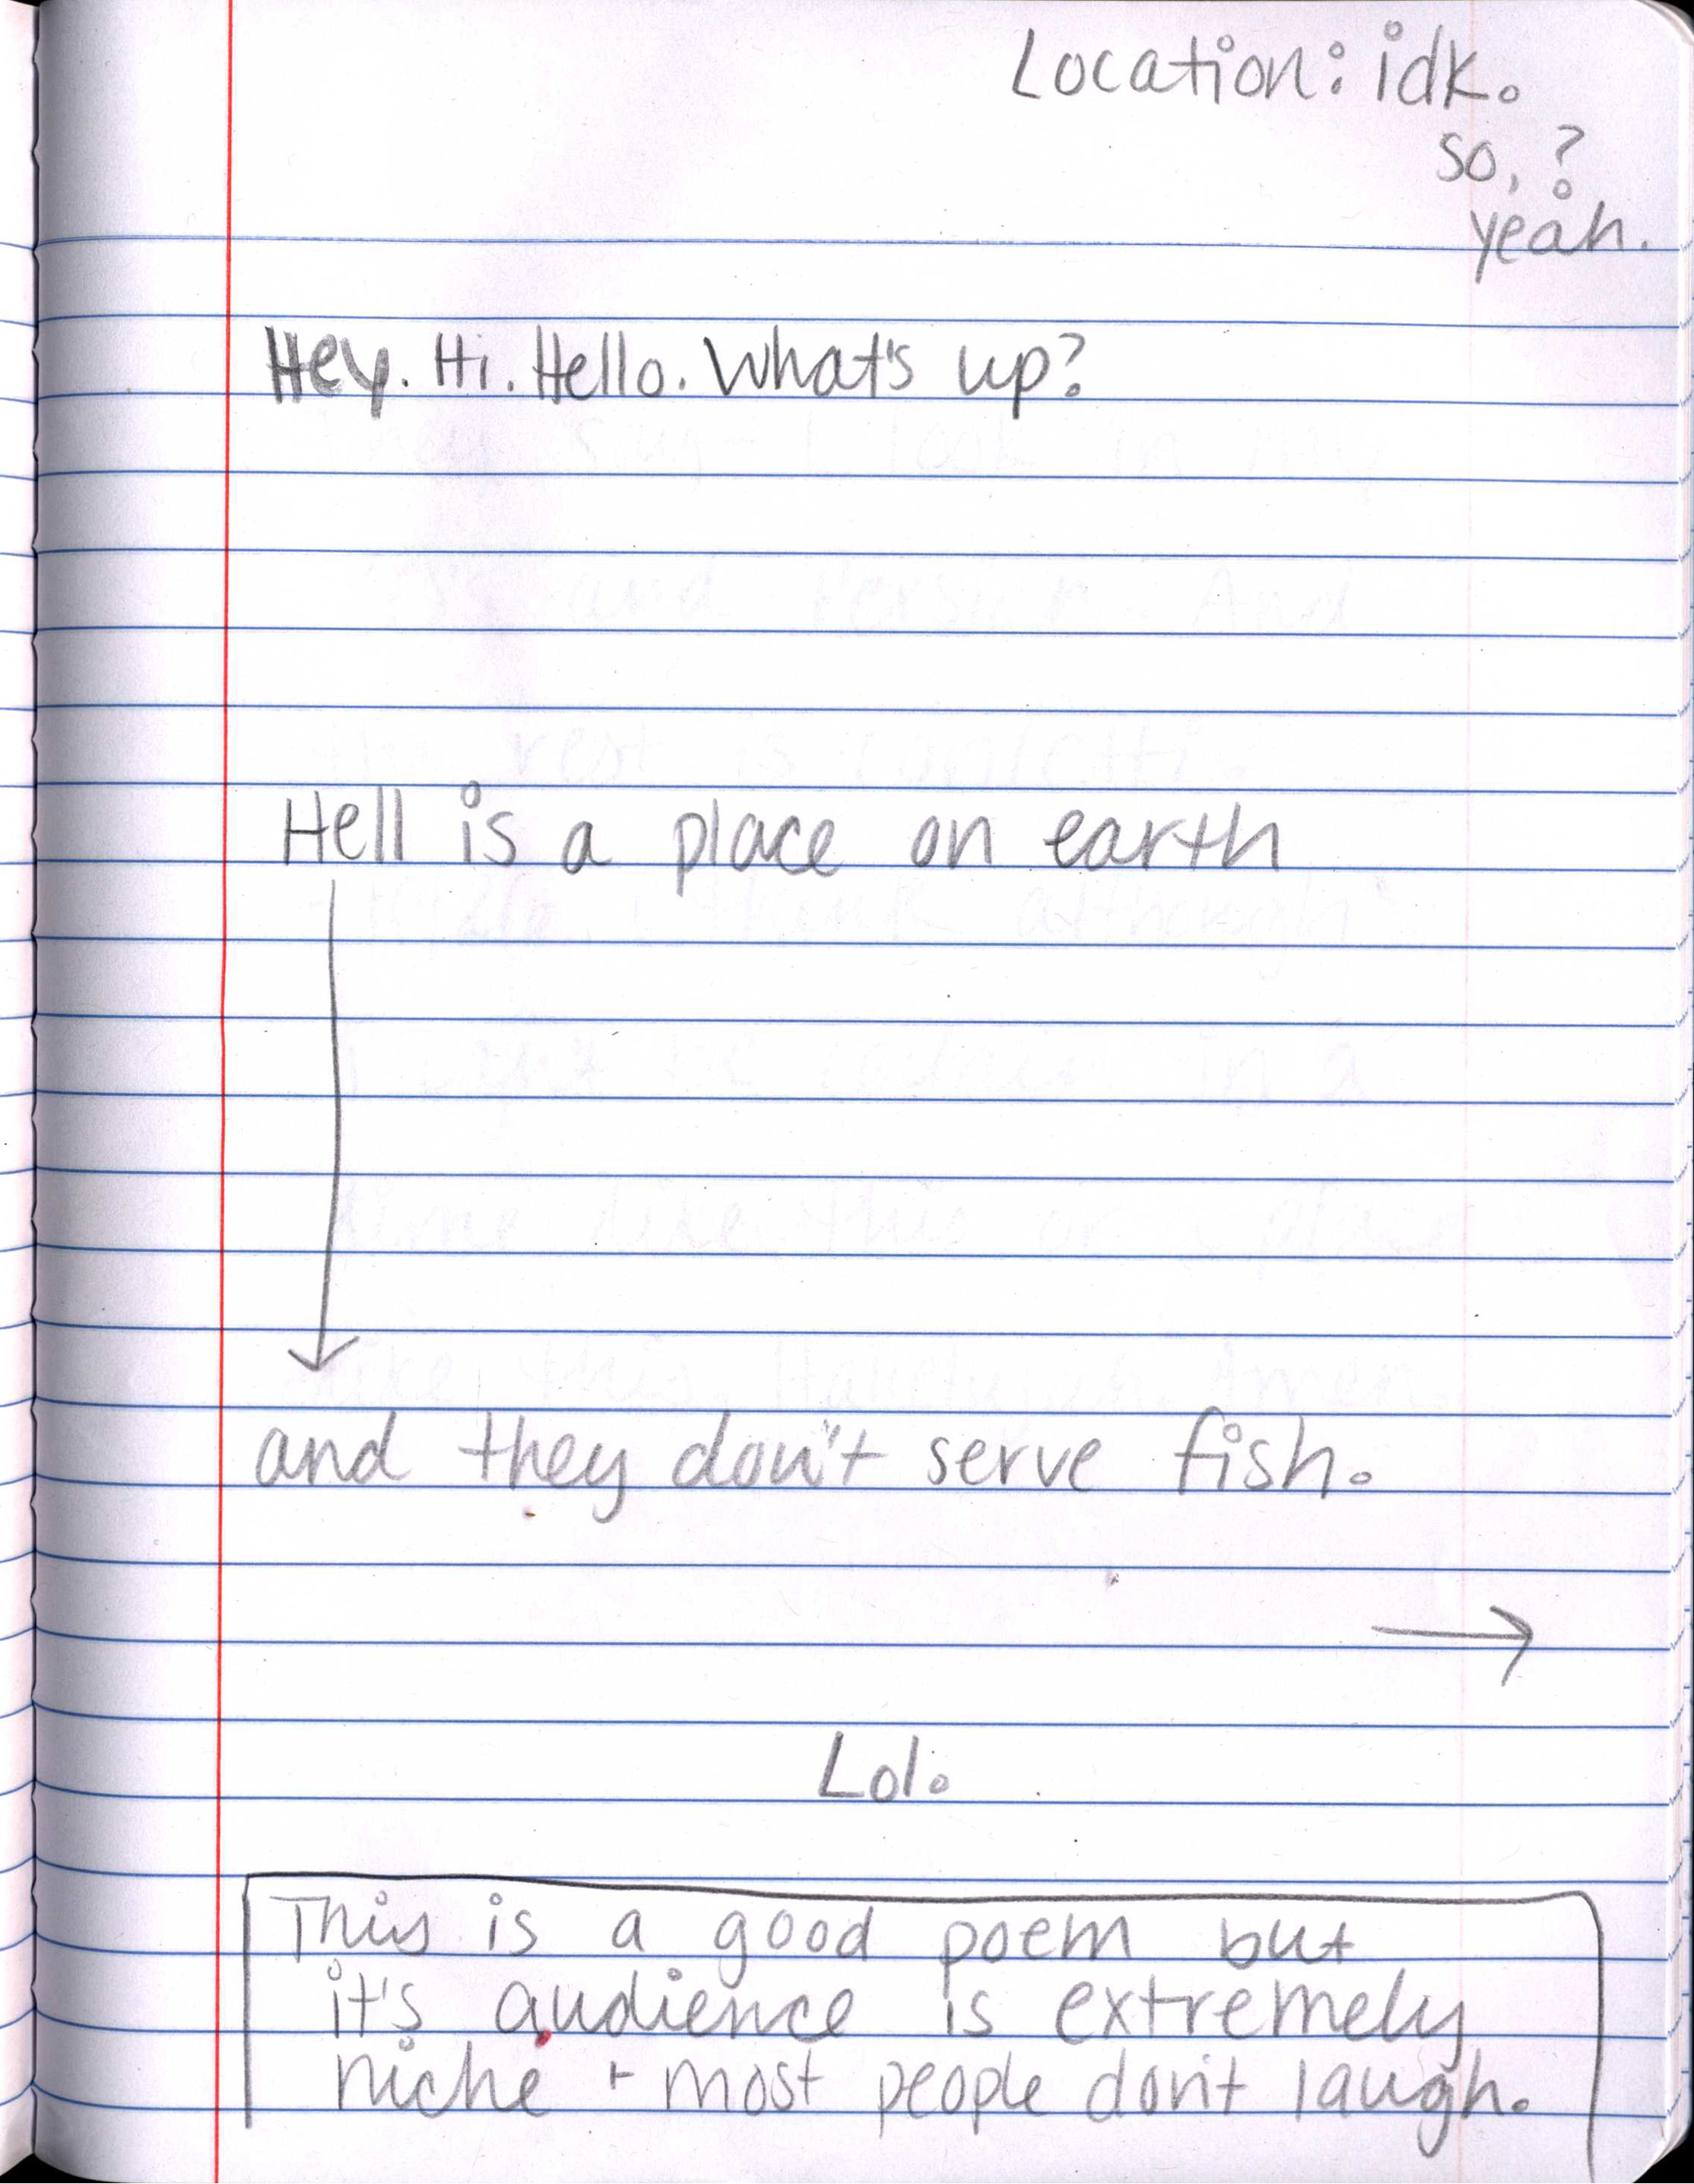 Location: idk.
so, ?
yeah.
Hey. Hi. Hello. What's up?
Hell is a place on earth
and they don't serve fish.
Lol.
This is a good poem but
it's audience is extremely
niche + most people don't laugh.